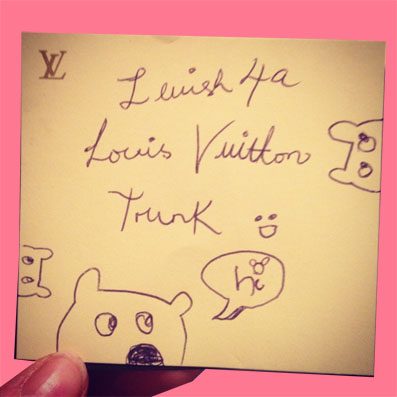 LV
I wish 4a
Louis Vuitton
Trunk
hi